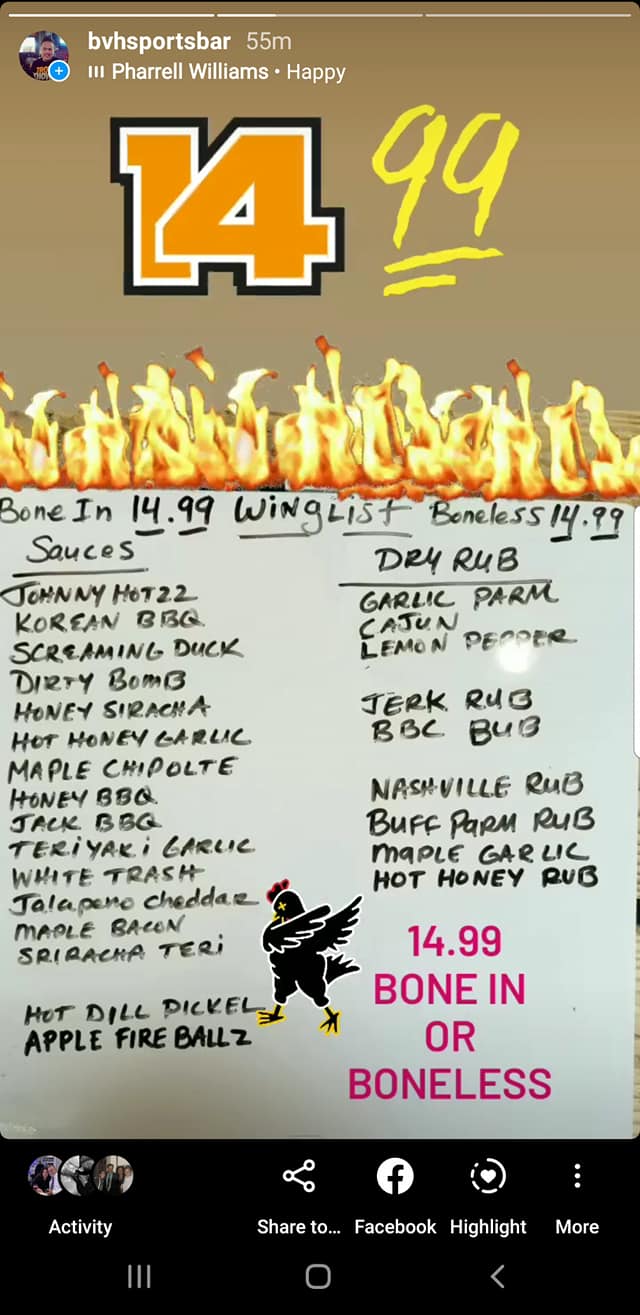 bvhsportsbar 55m
Pharrell Williams • Happy
14 99
Bone In 14.99 WiNgLiSt Boneless 14.99
Sauces
JOHNNY HOTZZ
KOREAN BBQ
SCREAMING DUCK
DIRTY BomB
HONEY SIRACHA
HOT HONEY GARLIC
MAPLE CHIPOLTE
HONEY BBQ
JACK BBQ
TERiYAKi GARLIC
WHITE TRASH
Jalapeno cheddar
MAPLE BACON
SRIRACHA TERi
HOT DILL PICKEL
APPLE FIRE BALLZ
DRY RUB
GARLIC PARM
CAJUN
LEMON PEPPER
JERK RUB
BBC BUB
NASHVILLE RUB
BUFF PARM RUB
MAPLE GARLIC
HOT HONEY RUB
14.99
BONE IN
OR
BONELESS
Activity
Share to...
Facebook
Highlight
More